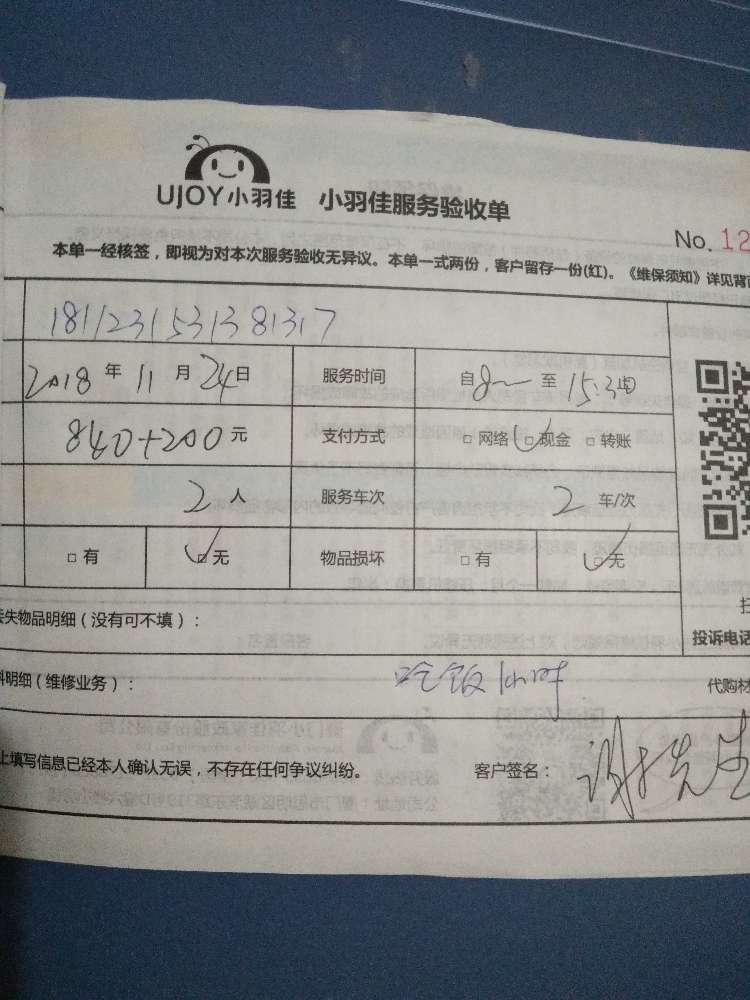 UJOY小羽佳 小羽佳服务验收单
No. 12
本单一经核签，即视为对本次服务验收无异议。本单一式两份，客户留存一份(红)。《维保须知》详见背
1811231531381317
2018年11月24日 服务时间 自8 至15:30
840+200元 支付方式 □网络 □现金 □转账
2人 服务车次 2车/次
□有 □无 物品损坏 □有 □无
失物品明细（没有可不填）：
投诉电话
料明细（维修业务）： 吃饭1小时 代购材
上填写信息已经本人确认无误，不存在任何争议纠纷。 客户签名： 谢先生